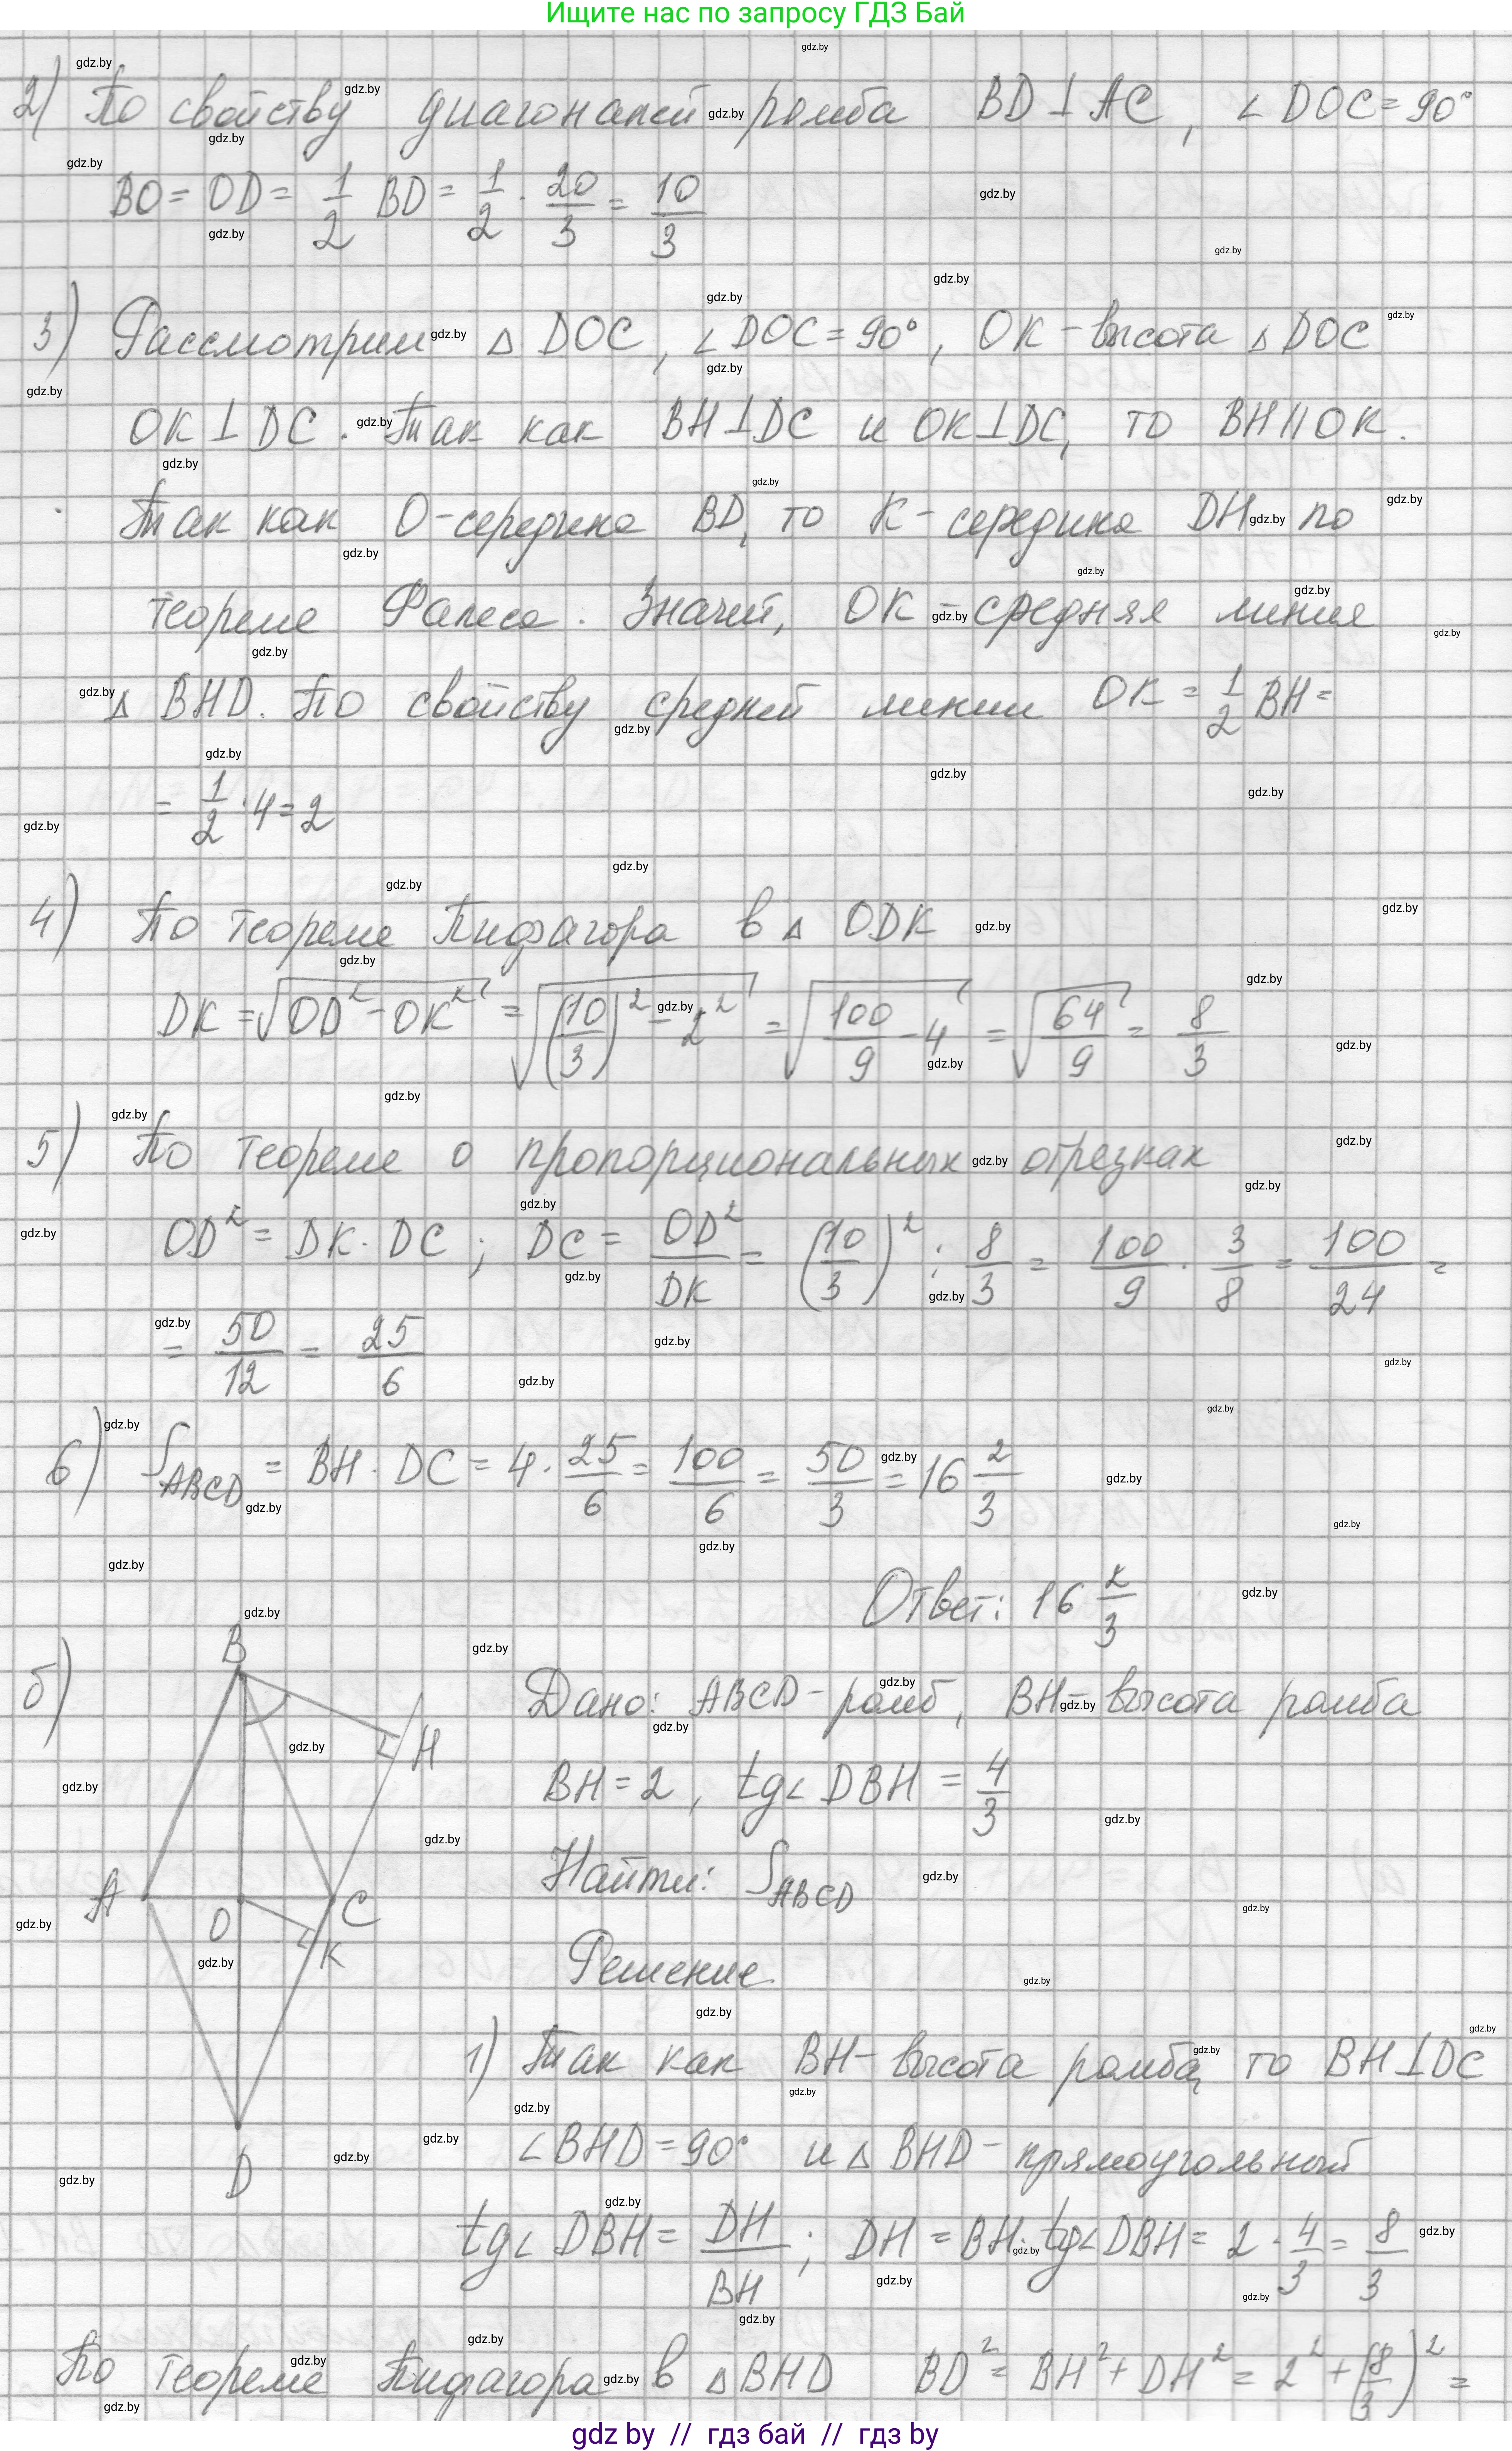 Ищите нас по запросу ГДЗ Бай
2) По свойству диагоналей ромба BD⊥AC, ∠DOC=90°
BO = OD = 1/2 BD = 1/2 · 20/3 = 10/3
3) Рассмотрим △ DOC, ∠DOC=90°, OK-высота △DOC
OK⊥DC. Так как BH⊥DC и OK⊥DC, то BH||OK.
Так как O-середина BD, то K-середина DH по
теореме Фалеса. Значит, OK-средняя линия
△ BHD. По свойству средней линии OK = 1/2 BH =
= 1/2 · 4 = 2
4) По теореме Пифагора в △ ODK
DK = √(OD² - OK²) = √((10/3)² - 2²) = √(100/9 - 4) = √(64/9) = 8/3
5) По теореме о пропорциональных отрезках
OD² = DK · DC ; DC = OD²/DK = (10/3)² : 8/3 = 100/9 · 3/8 = 100/24 =
= 50/12 = 25/6
6) S ABCD = BH · DC = 4 · 25/6 = 100/6 = 50/3 = 16 2/3
Ответ: 16 2/3
б)
B
H
A
O
C
K
D
Дано: ABCD-ромб, BH-высота ромба
BH = 2, tg∠ DBH = 4/3
Найти: S ABCD
Решение
1) Так как BH-высота ромба, то BH⊥DC
∠BHD = 90° и △ BHD-прямоугольный
tg∠ DBH = DH/BH ; DH = BH · tg∠DBH = 2 · 4/3 = 8/3
По теореме Пифагора в △BHD BD² = BH² + DH² = 2² + (8/3)² =
gdz by // гдз бай // гдз by